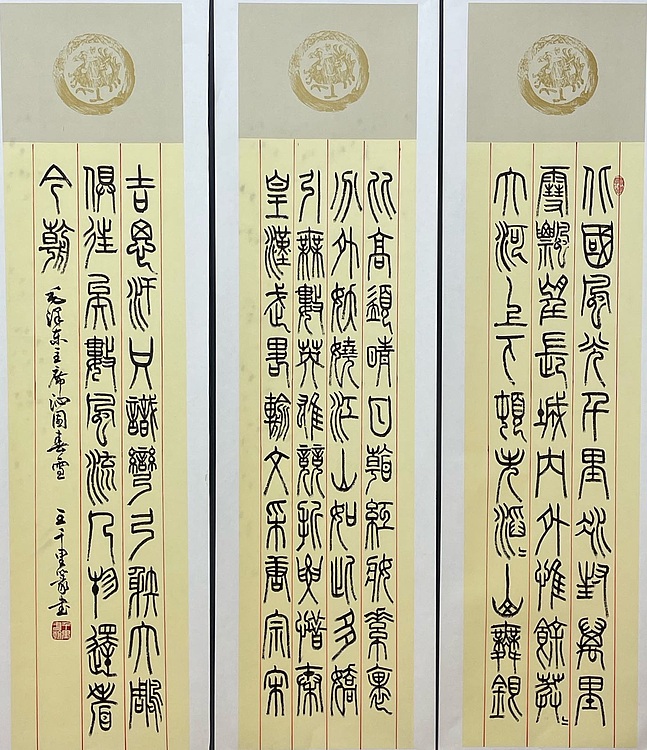 北國風光千里冰封萬里
雪飄望長城內外惟餘莽〻
大河上下頓失滔〻山舞銀
比高須晴日看紅妝素裹
分外妖嬈江山如此多嬌
引無數英雄競折腰惜秦
皇漢武略輸文采唐宗宋
吉思汗只識彎弓射大雕
俱往矣數風流人物還看
今朝
毛澤東主席沁園春雪 王千里篆書